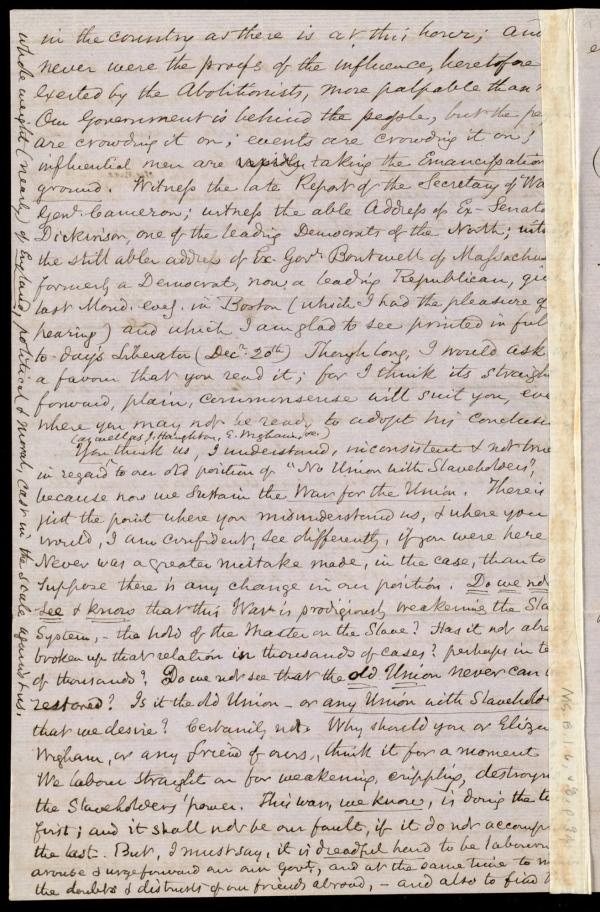 in the country as there is at this hour; and
never were the proofs of the influence, heretofore
exerted by the Abolitionists, more palpable than
Our Government is behind the people, but the
are crowding it on; events are crowding it on;
influential men are taking the Emancipation
ground. Witness the late Report of the Secretary of Wa
Genl. Cameron; witness the able Address of Ex-Senato
Dickinson, one of the leading Democrats of the North; witn
the still abler address of Ex. Govr. Boutwell of Massachus
formerly a Democrat, now a leading Republican, giv
last Mond. eveg. in Boston (which I had the pleasure of
hearing) and which I am glad to see printed in full
to-day's Liberator (Decr. 20th) Though long, I would ask
a favour that you read it; for I think its straight
forward, plain, commonsense will suit you, eve
where you may not be ready to adopt his conclusi
(as well as J. Haughton, E. Wigham, &c.)
You think us, I understand, inconsistent & not true
in regard to our old position of "No Union with Slaveholders",
because now we sustain the War for the Union. There is
just the point where you misunderstand us, & where you
would, I am confident, see differently, if you were here
Never was a greater mistake made, in the case, than to
suppose there is any change in our position. Do we not
see & know that this War is prodigiously weakening the Sla
System, - the hold of the Master on the Slave? Has it not alre
broken up that relation in thousands of cases? perhaps in te
of thousands? Do we not see that the old Union never can
restored? Is it the old Union - or any Union with Slavehold
that we desire? Certainly not. Why should you or Eliza
Wigham, or any friend of ours, think it for a moment
We labour straight on for weakening, crippling, destroyin
the Slaveholders' power. This war, we know, is doing the
first; and it shall not be our fault, if it do not accomp
the last. But, I must say, it is dreadful hard to be labourin
arouse & urge forward our own Govt., and at the same time to
the doubts & distrusts of our friends abroad, - and also to find
whole weight (nearly) of England, political & moral, cast in the scale against us.